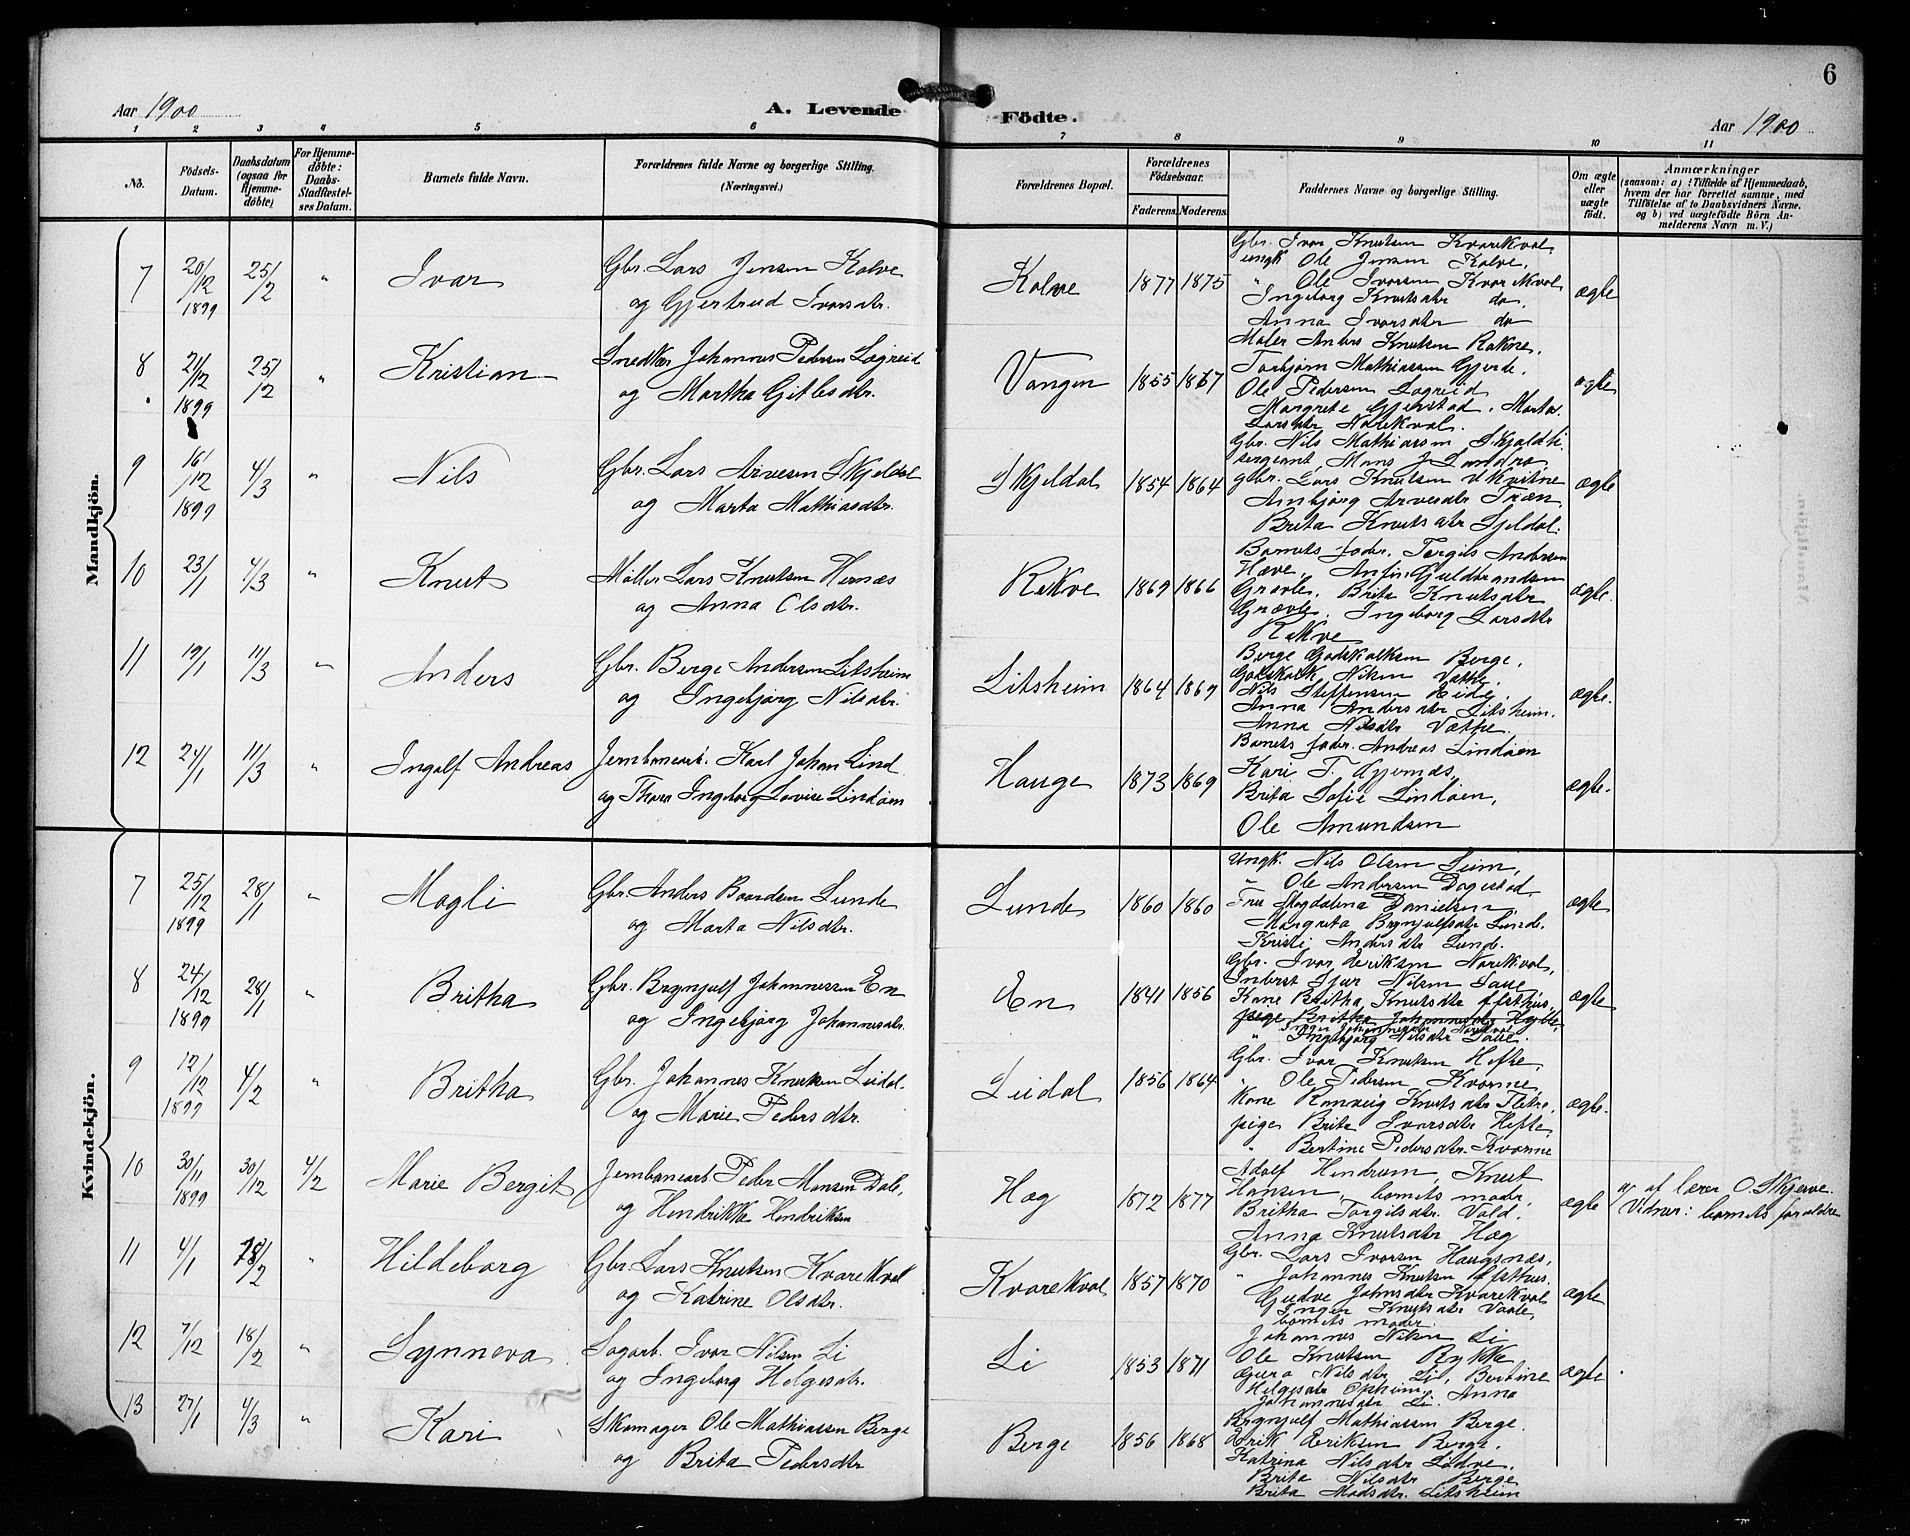 6
Aar 1900
A. Levende Födte.
Aar 1900
1 2 3 4 5 6 7 8 9 10 11
No.
Födsels-Datum.
Daabsdatum (ogsaa for Hjemme-döbte)
For Hjemme-döbte: Daabs-Stadfæstel-ses Datum.
Barnets fulde Navn.
Forældrenes fulde Navne og borgerlige Stilling. (Næringsvei.)
Forældrenes Bopæl.
Forældrenes Födselsaar.
Faderens. Moderens.
Faddernes Navne og borgerlige Stilling.
Om ægte eller uægte födt.
Anmærkninger
(saasom: a) i Tilfælde af Hjemmedaab, hvem der har forrettet samme, med Tilföielse af to Daabsvidners Navne. og b) ved uægtefödte Börn An-melderens Navn m. V.)
Mandkjön.
7 20/12 1899 25/2 " Ivar
Gbr. Lars Jensen Kolve
og Gjertrud Ivarsdtr.
Kolve 1877 1875
Gbr. Ivar Knutsen Kvarekval
ungk Ole Jensen Kolve,
" Ole Ivarsen Kvarekval
Ingeborg Knutsdtr do,
Anna Ivarsdtr do
ægte
8 21/12 1899 25/2 " Kristian
Snedker Johannes Pedersen Lægreid
og Martha Gitlesdtr.
Vangen 1855 1867
Maler Anders Knutsen Rokne,
Torbjørn Mathiassen Gjerde,
Ole Pedersen Lægreid
Margrete Gjerstad, Marta
Larsdtr Narekval.
ægte
9 16/12 1899 4/3 " Nils
Gbr. Lars Arvesen Skjeldal
og Marta Mathiasdtr.
Skjeldal 1854 1864
Gbr. Nils Mathiassen Skjeldli
sergeant Mons J Landro
gbr. Lars Knutsen Kvitne
Ambjørg Arvesdtr Træn
Brita Knutsdtr Sjeldal.
ægte
10 23/1 4/3 " Knut
Møller Lars Knutsen Hernæs
og Anna Olsdtr.
Rekve 1869 1866
Barnets fader, Torgils Andersen
Hæve, Anfin Guldbrandsen
Grovle, Brita Knutsdtr
Grovle, Ingeborg Larsdtr
Rekve
ægte.
11 19/1 11/3 " Anders
Gbr. Berge Andersen Litsheim
og Ingebjørg Nilsdtr.
Litsheim 1864 1869
Berge Godskalksen Berge,
Godskalk Nilsen Vætte,
Nils Steffensen Eide,
Anna Andersdtr Litsheim.
Anna Nilsdtr Vætte.
ægte.
12 24/1 11/3 " Ingolf Andreas
Jernbanearb. Karl Johan Lind
og Thora Ingeborg Lovise Lindøen
Hauge 1873 1869
Barnets fader. Andreas Lindøen
Kari T. Gjernæs,
Brita Sofie Lindøen,
Ole Amundsen
ægte.
Kvindekjön.
7 25/12 1899 28/1 " Magli
Gbr. Anders Baardsen Lunde
og Marta Nilsdtr.
Lunde 1860 1860
Ungk. Nils Olsen Seim,
" Ole Andersen Dagestad
Fru Magdalena Danielsen,
Margreta Brynjulfsdtr Lunde.
Kristi Andersdtr Lunde.
ægte
8 24/12 1899 28/1 " Britha
Gbr. Brynjulf Johannessen En
og Ingebjørg Johannesdtr.
En 1841 1856
Gbr. Ivar Eriksen Narekval,
Inderst Sjur Nilsen Saue
Kone Britha Knutsdtr Afsthus,
pige Britha Johannesdtr Hylle,
Inger Johannesdtr Narekval
" Ingebjørg Nilsdtr Saue.
ægte
9 12/12 1899 4/2 " Britha
Gbr. Johannes Knutsen Lidal
og Marie Pedersdtr.
Lidal 1856 1864
Gbr. Ivar Knutsen Hefte
" Ole Pedersen Kvarme,
Kone Ranveig Knutsdtr Fletre,
pige Brita Ivarsdtr Hefte,
" Bertine Pedersdtr. Kvarme
ægte.
10 30/11 1899 30/12 4/2 Marie Bergit
Jernbanearb. Peder Monsen Dale,
og Hendrikke Hendriksen
Hæg 1872 1877
Adolf Hendrum, Knut
Hansen, barnets moder,
Britha Torgilsdtr. Vold,
Anna Knutsdtr Hæg
ægte
a) af lærer O. Skjerve.
Vidner: barnets forældre
11 4/1 18/2 " Hildeborg
Gbr. Lars Knutsen Kvarekval
og Katrine Olsdtr.
Kvarekval 1857 1870
Gbr. Lars Ivarsen Haugsnæs,
" Johannes Knutsen Afsthus.
Gudve Johnsdtr Kvarekval
Inger Knutsdtr
barnets moder.
ægte
12 7/12 18/2 " Synneva
Sagarb. Ivar Nilsen Li
og Ingeborg Helgesdtr.
Li 1853 1871
Johannes Nilsen Li
Ole Knutsen Rykke
Guro Nilsdtr Li, Bertine
Helgesdtr Opheim, Anna
Johannesdtr Li.
ægte
13 27/1 4/3 " Kari
Skomager Ole Mathiassen Berge
og Brita Pedersdtr
Berge 1856 1868
Brynjulf Mathiassen Berge.
Erik Eriksen Berge.
Katrina Nilsdtr Lødve,
Brita Nilsdtr Berge
Brita Madsdtr. Litsheim